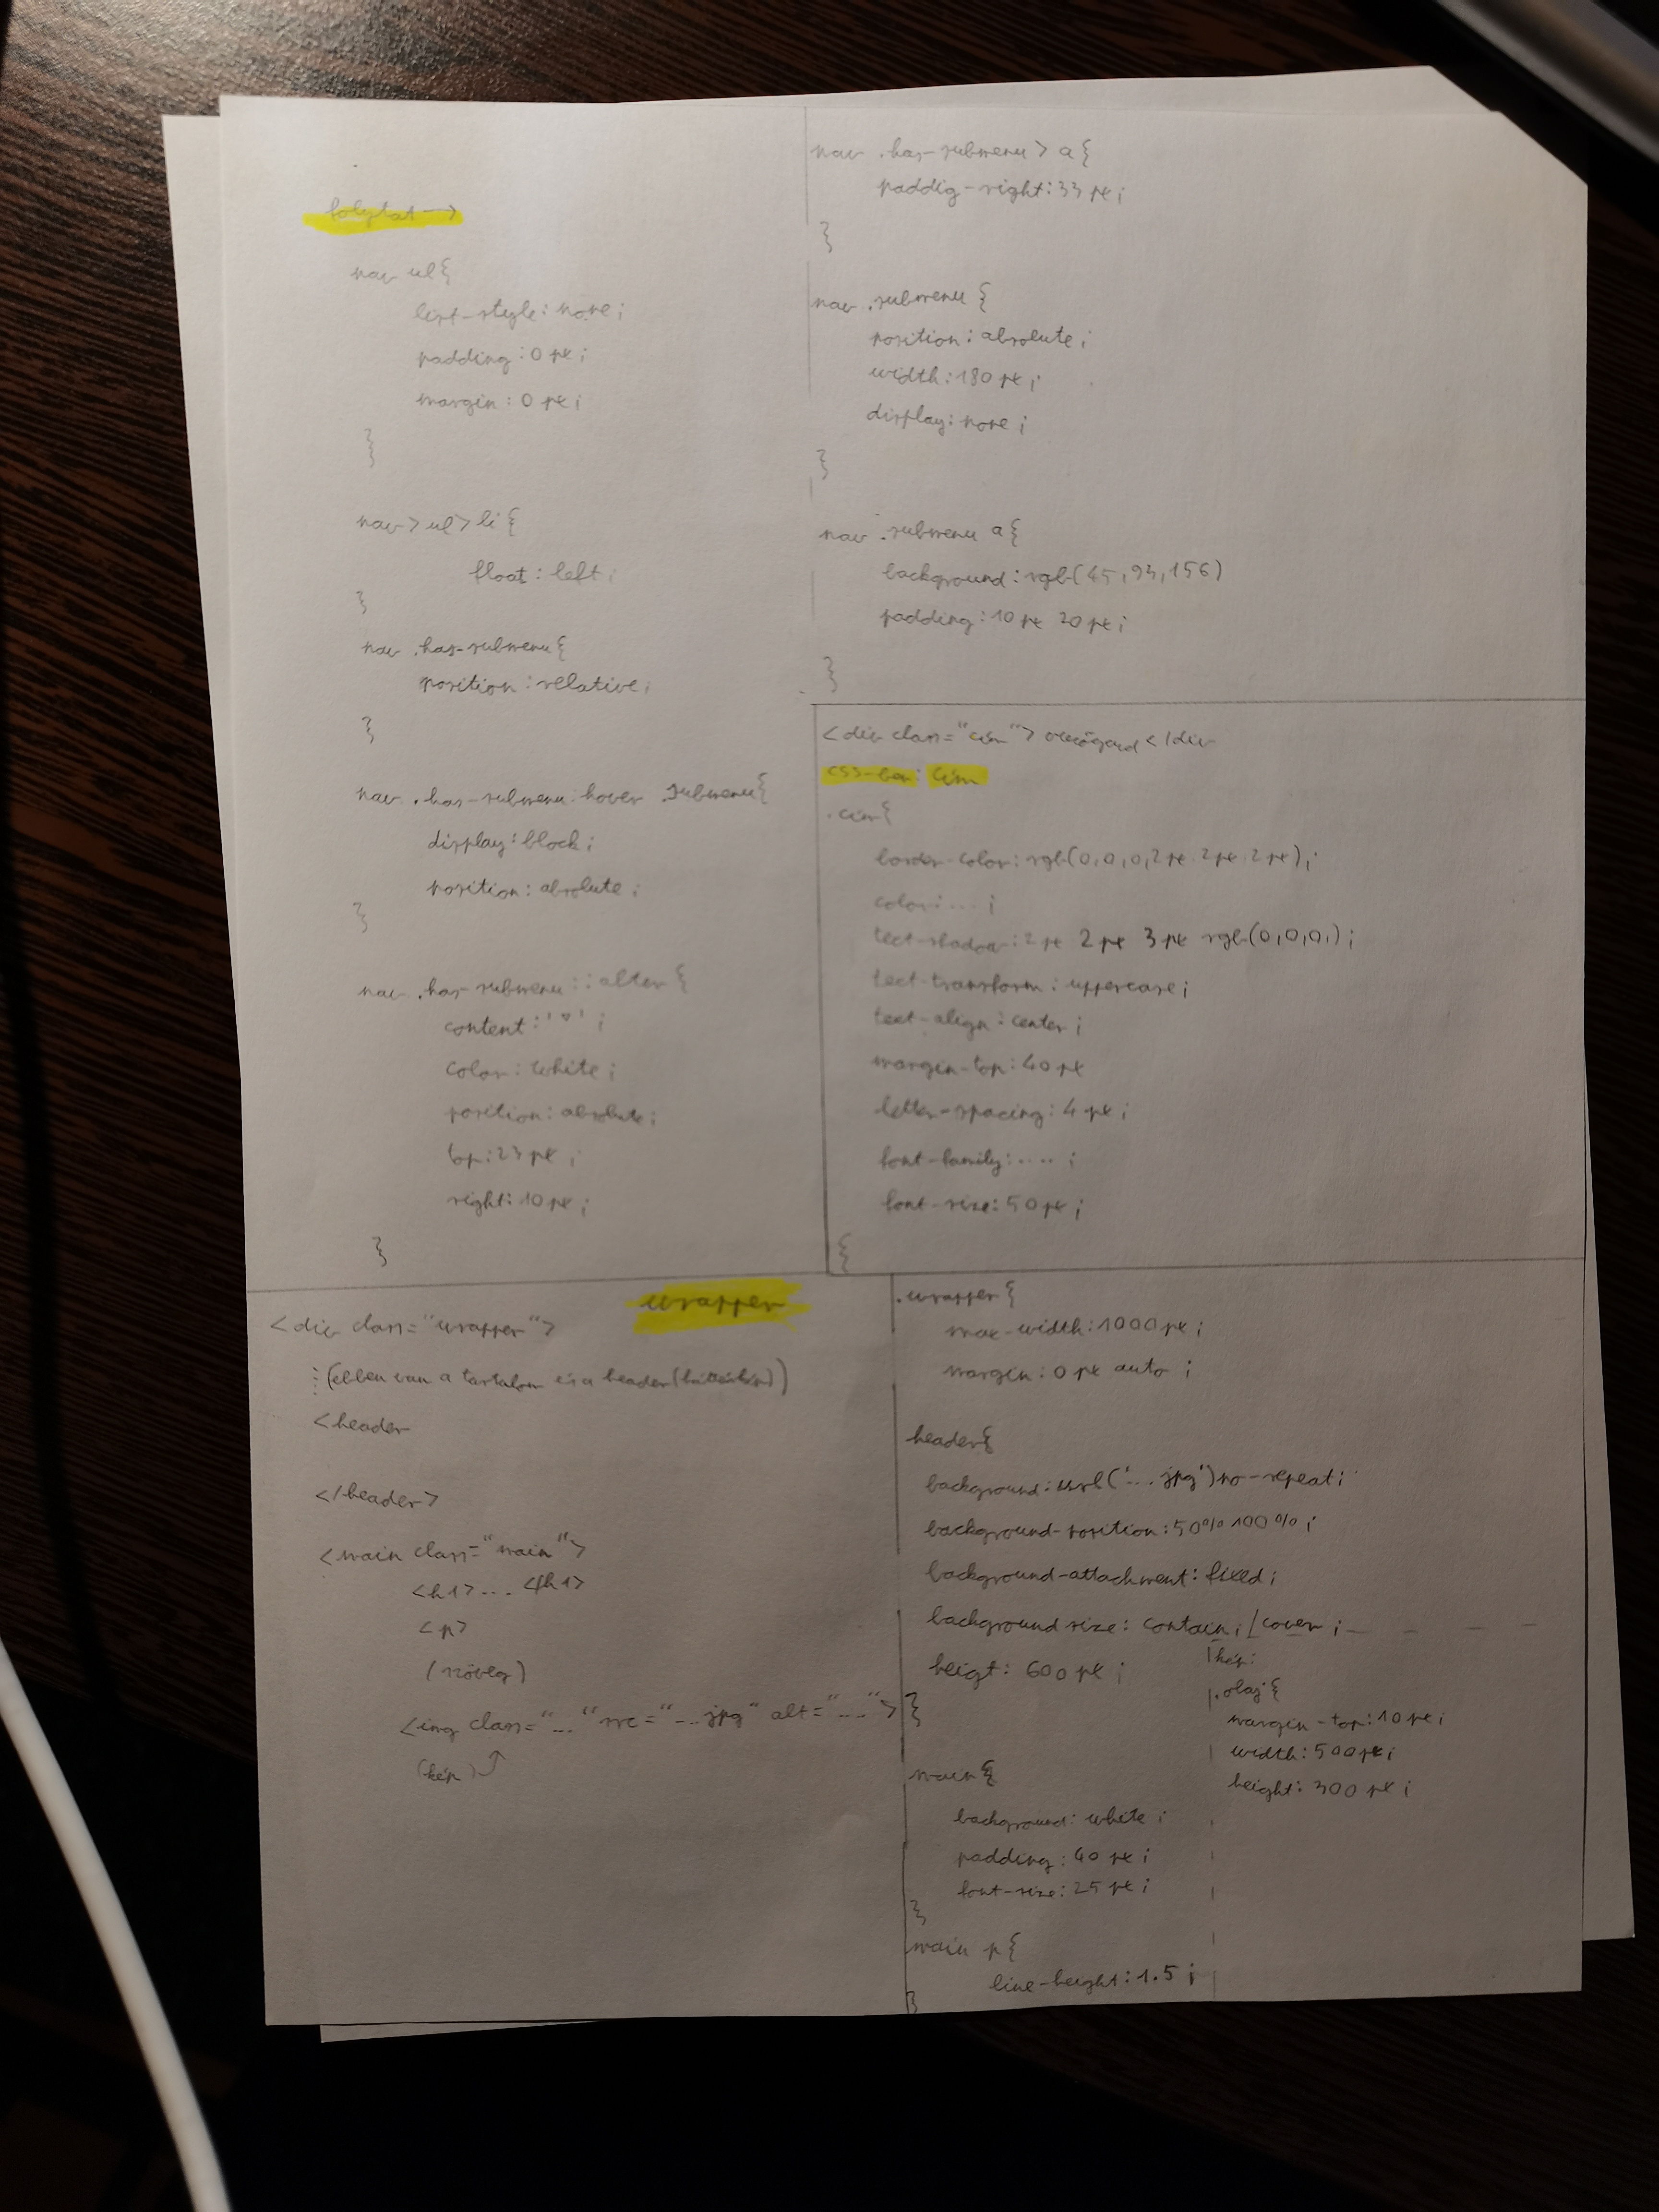 folytat →
nav ul{
list-style: none;
padding: 0 px;
margin: 0 px;
}
nav > ul > li {
float: left;
}
nav .has-submenu{
position: relative;
}
nav .has-submenu:hover .submenu{
display: block;
position: absolute;
}
nav .has-submenu::alter {
content: '˅';
color: white;
position: absolute;
top: 23 px;
right: 10 px;
}
nav .has-submenu > a {
paddig-right: 33 px;
}
nav .submenu {
position: absolute;
width: 180 px;
display: none;
}
nav .submenu a{
background: rgb(45, 93, 156)
padding: 10 px 20 px;
}
<div class="cím"> </div
CSS-ben: Cím
.cím{
border-color: rgb(0,0,0,2 px 2 px 2 px);
color: ... ;
text-shadow: 2 px 2 px 3 px rgb(0,0,0,);
text-transform: uppercase;
text-align: center;
margin-top: 40 px
letter-spacing: 4 px;
font-family: .... ;
font-size: 50 px;
{
wrapper
<div class="wrapper">
⋮ (ebben van a tartalom és a header (háttérkép))
<header
</header>
<main class="main">
<h1> ... </h1>
<p>
(szöveg)
<img class="..." src="...jpg" alt="...">
(kép)
.wrapper {
max-width: 1000 px;
margin: 0 px auto ;
header{
background: url('....jpg') no-repeat;
background-position: 50% 100% ;
background-attachment: fixed;
background size: contain; / cover ;
heigt: 600 px ;
}
main{
background: white ;
padding: 40 px ;
font-size: 25 px ;
}
main p{
line-height: 1.5 ;
}
kép:
.olaj {
margin-top: 10 px;
width: 500 px;
height: 300 px ;